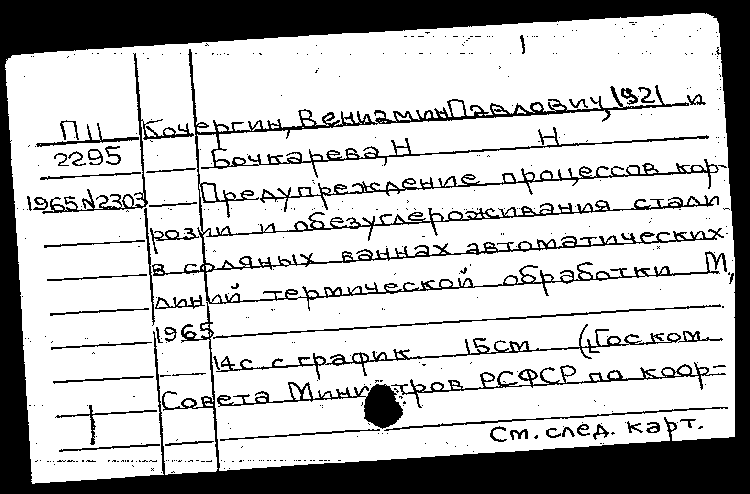 П11 Кочергин, Вениамин Павлович, 1921 и
2295 Бочкарева, Н Н
1965 N2303 Предупреждение процессов кор-
розии и обезуглероживания стали
в соляных ваннах автоматических
линий термической обработки М,
1965
14 с. с график. 15 см (Гос ком.
Совета Министров РСФСР по коор-
См. след. карт.